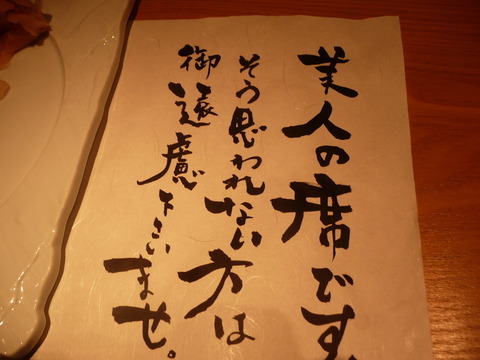 美人の席です、
そう思われない方は
御遠慮下さいませ。